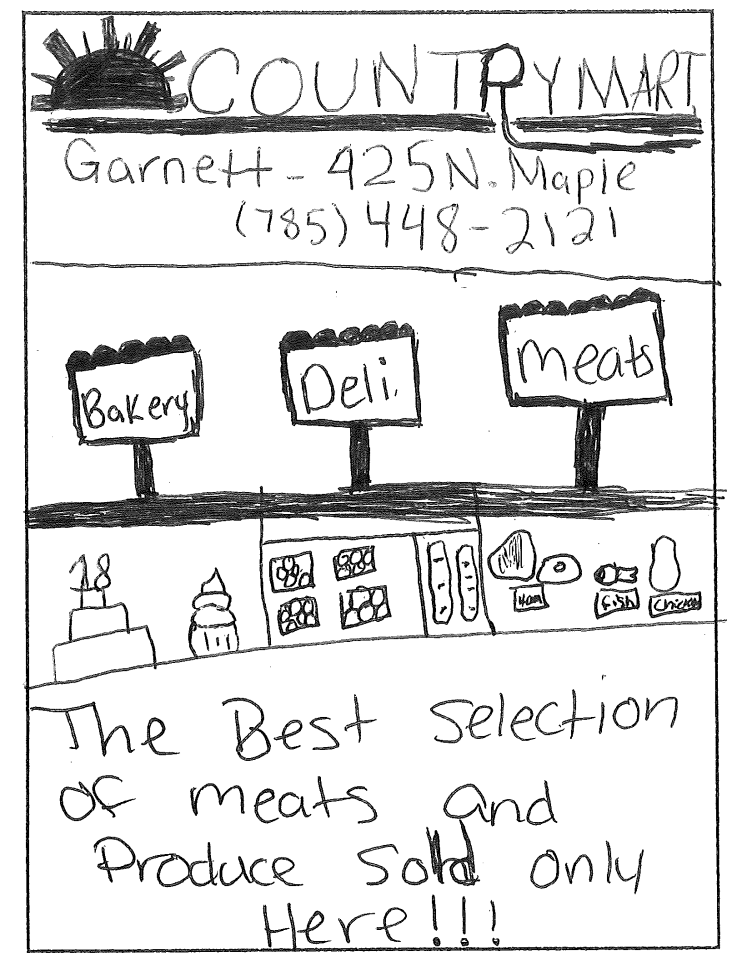 COUNTRYMART
Garnett - 425 N. Maple
(785) 448-2121
Bakery
Deli.
meats
18
Ham
fish
Chicken
The Best Selection
of meats and
Produce Sold only
Here!!!